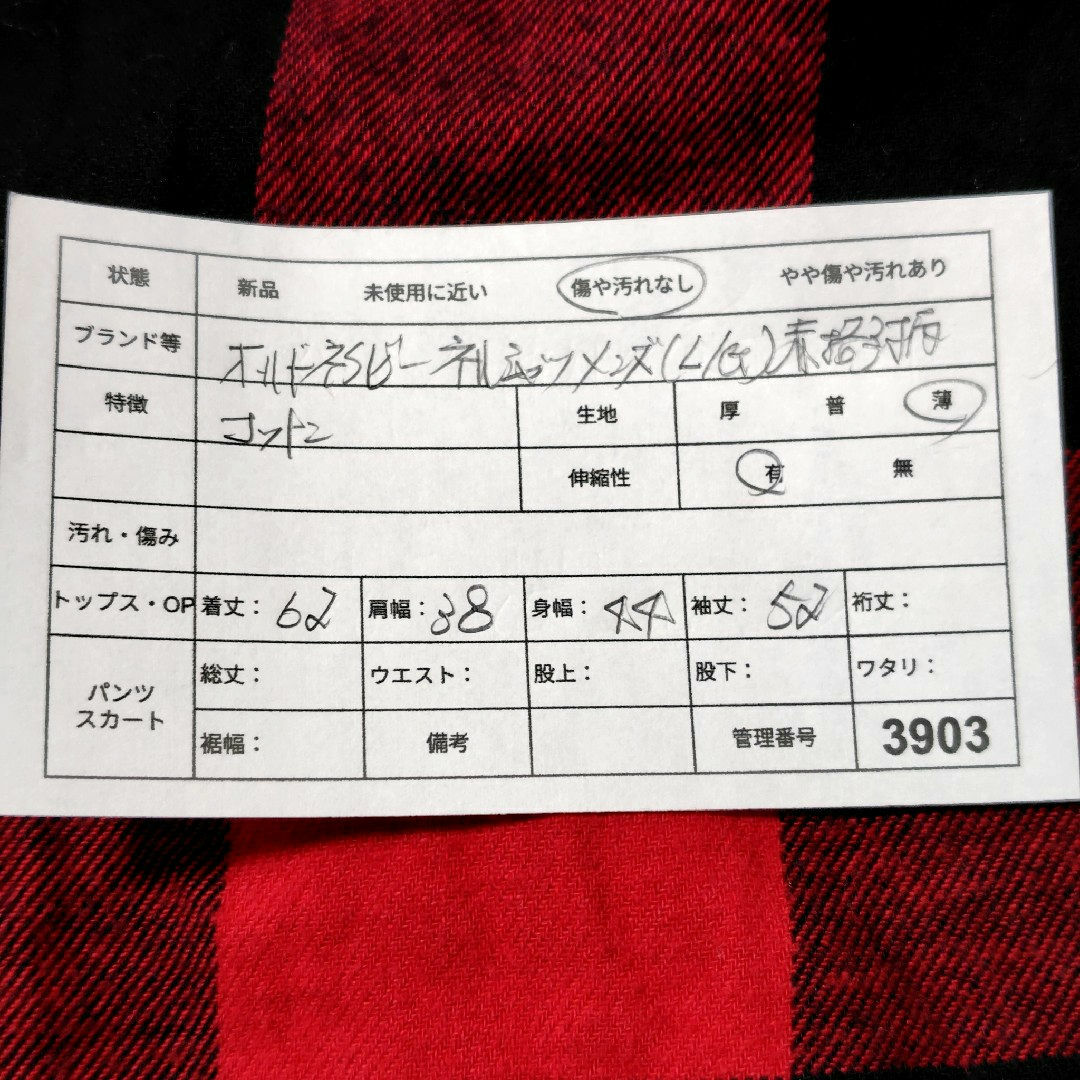 状態 新品 未使用に近い 傷や汚れなし やや傷や汚れあり
ブランド等 オールドネイビー ネルシャツ メンズ(L/G)赤格子柄
特徴 コットン 生地 厚 普 薄
伸縮性 有 無
汚れ・傷み
トップス・OP 着丈： 62 肩幅： 38 身幅： 44 袖丈： 52 裄丈：
パンツ スカート 総丈： ウエスト： 股上： 股下： ワタリ：
裾幅： 備考 管理番号 3903